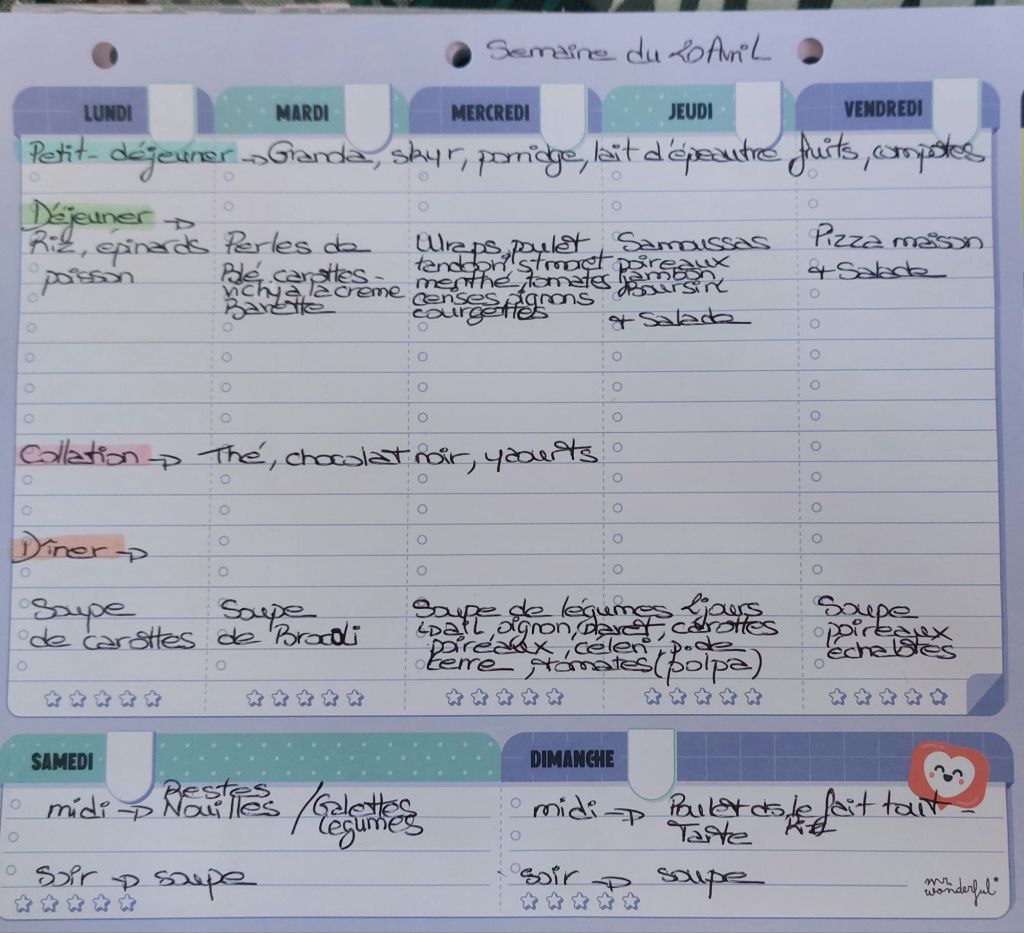 Semaine du 20 Avril
LUNDI MARDI MERCREDI JEUDI VENDREDI
Petit-déjeuner → Granda, skyr, porridge, lait d'épeautre fruits, compotes
Déjeuner →
Riz, épinards
poisson
Perles de
Blé, carottes-
vichy à la crème
Wraps, poulet
menthe, tomates
oignons
courgettes
Samoussas
poireaux
jambon
Boursin
+ Salade
Pizza maison
+ Salade
Collation → Thé, chocolat noir, yaourts
Dîner →
Soupe
de carottes
Soupe
de Brocoli
Soupe de légumes 2jours
oignon, navet, carottes
poireaux, céleri, p. de
terre, tomates (polpa)
Soupe
poireaux
échalotes
SAMEDI
midi → Restes
Nouilles / Galettes
légumes
soir → soupe
DIMANCHE
midi → Poulet ds le fait tout -
Tarte Riz
soir → soupe
mr. wonderful*